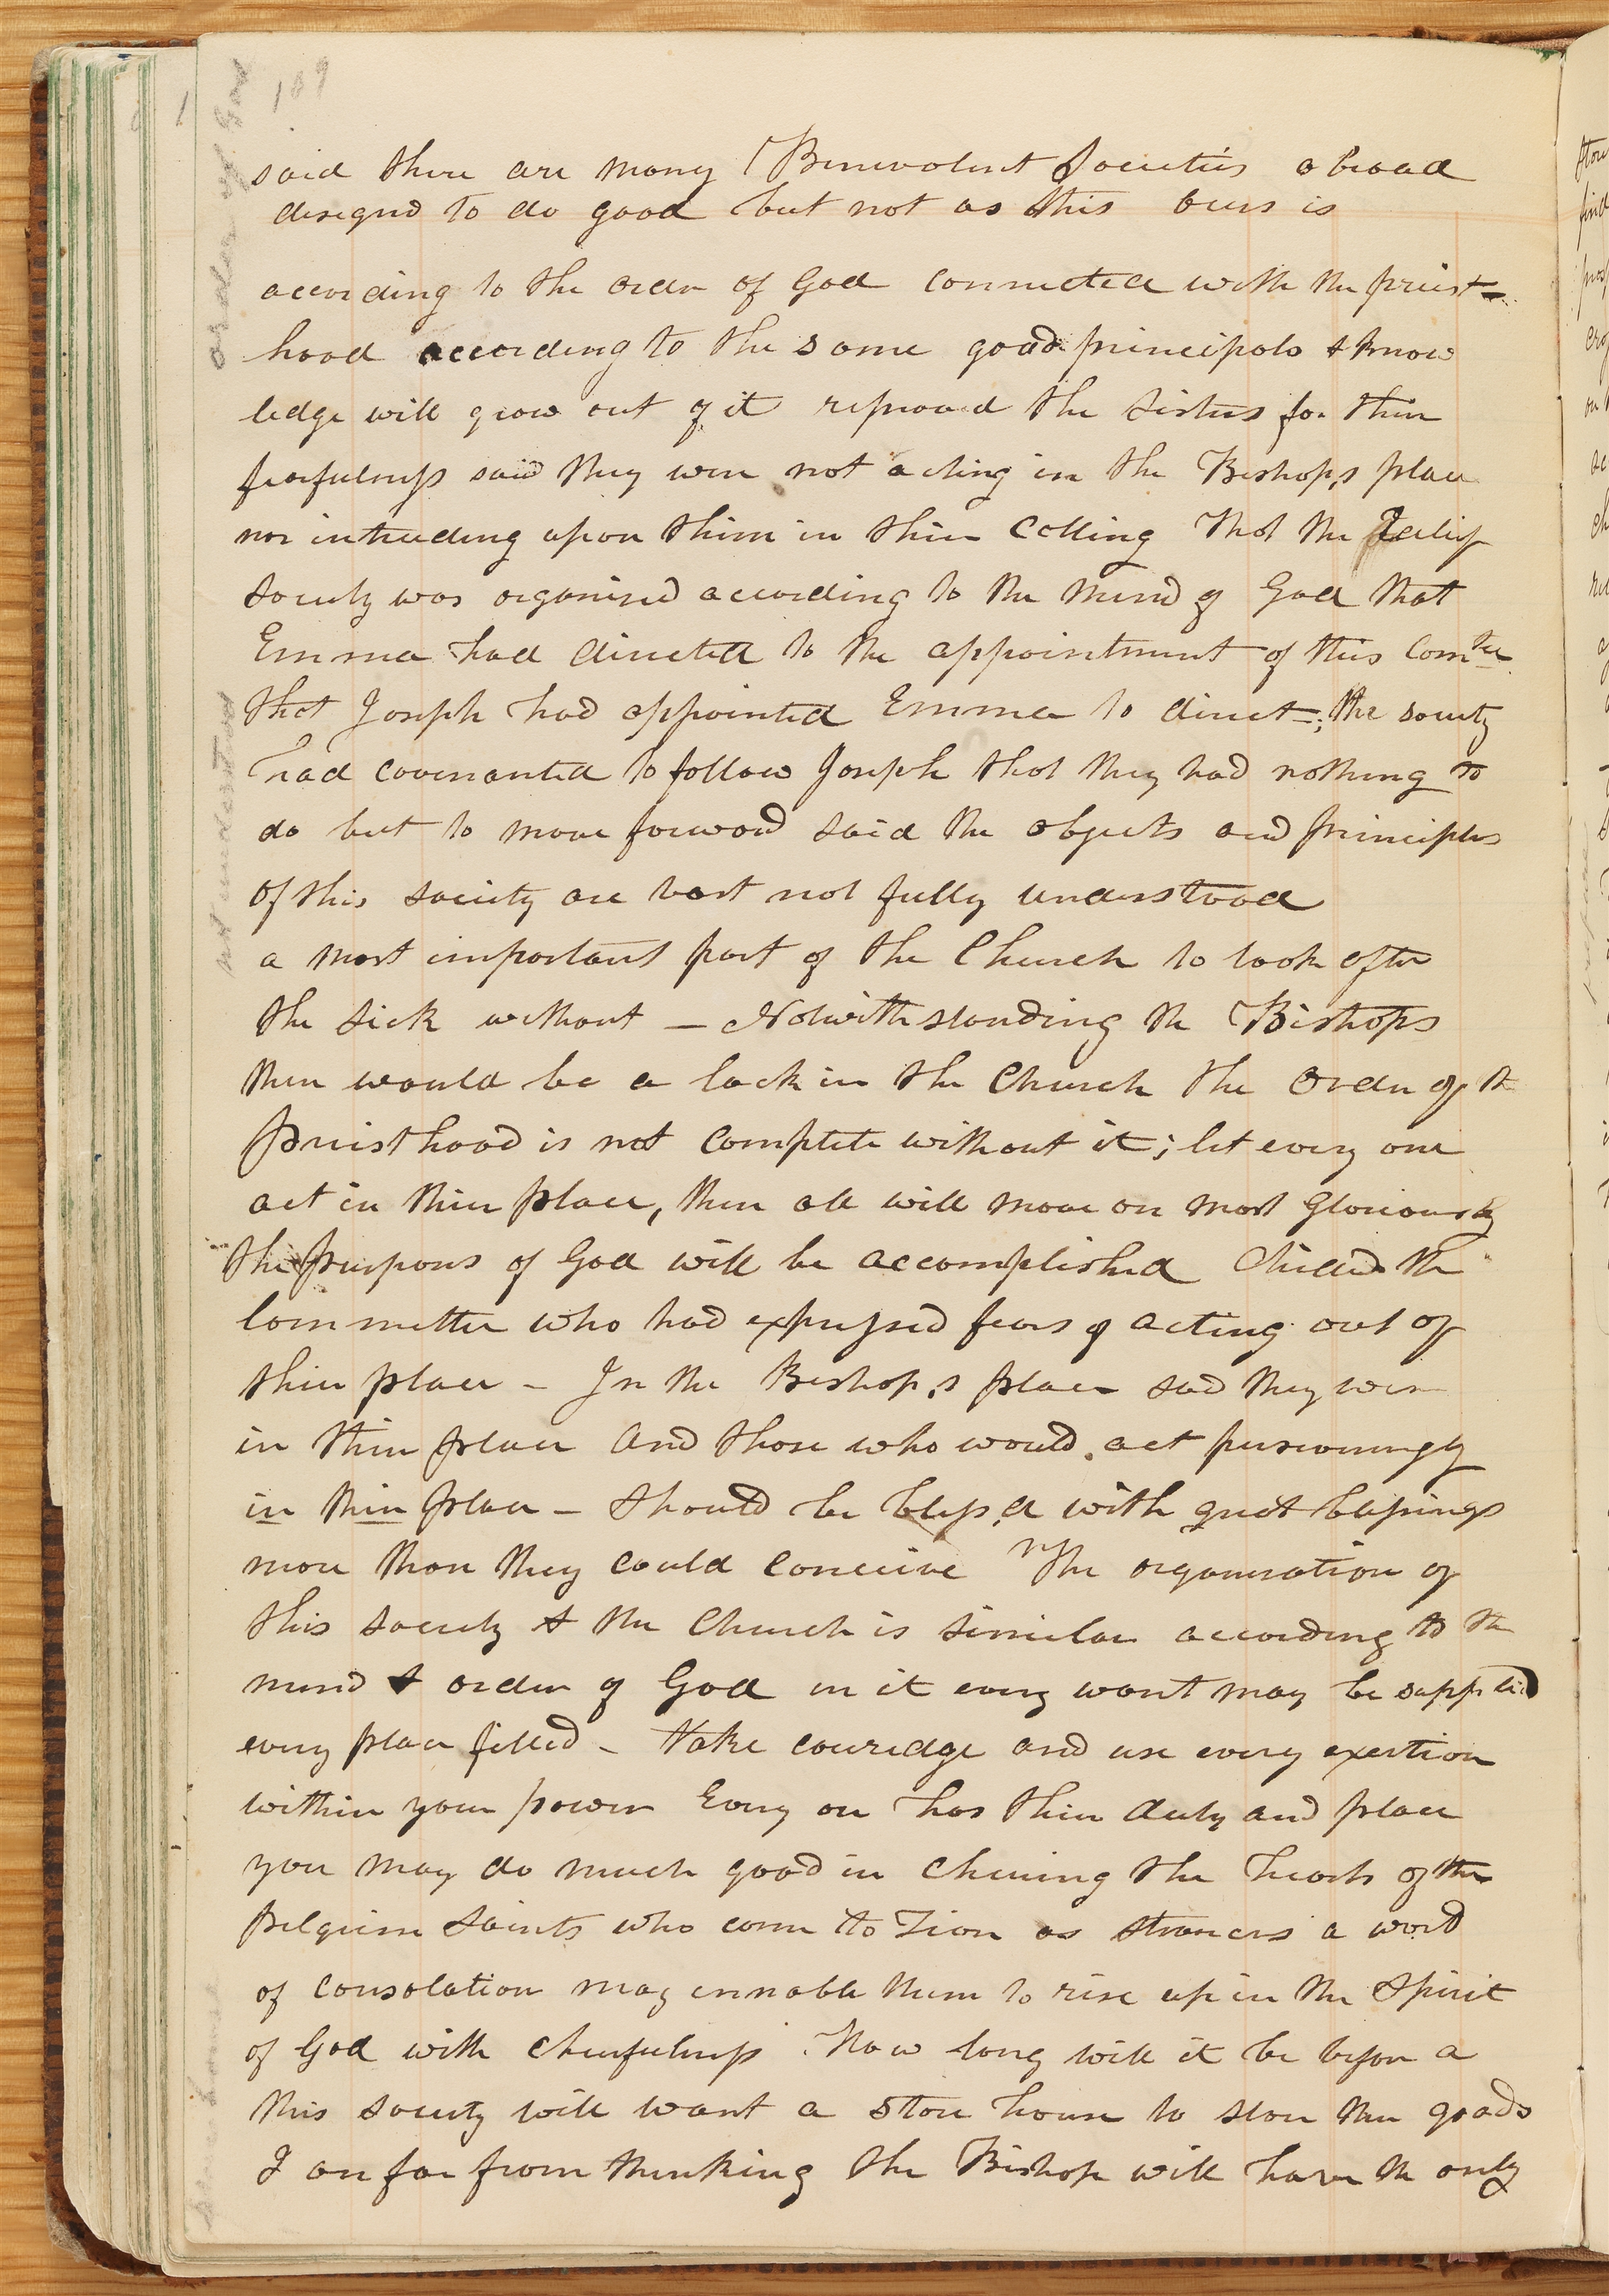 109
said there are many Benevolent Societies abroad
designd to do good but not as this ours is
according to the order of God connected with the priest=
hood according to the same good principals & know
ledge will grow out of it reproved the sisters for their
fearfulness said they were not acting in the Bishop,s place
nor intruding upon them in their Calling That the Relief
Society was organised according to the mind of God that
Emma had directed to the appointment of this Comtee
that Joseph had appointed Emma to direct; the society
had covenanted to follow Joseph that they had nothing to
do but to move forward said the objects and principles
of this society are vast not fully understood
a most important part of the Church to look after
the sick without — Notwithstanding the Bishops
there would be a lack in the Church the order of the
Priesthood is not complete without it; let every one
act in their place, then all will move on most Gloriously
the purposes of God will be accomplished Chided the
Commettee who had expressed fears of acting out of
their place — In the Bishop,s place said they were
in their place and those who would act perseveringly
in their place — should be bless,d with great blessings
more than they could conceive The organisation of
this society & the Church is similar according to the
mind & order of God in it every want may be supplied
every place filled — take couredge and use every exertion
within your power Every on has their duty and place
you may do much good in cheering the hearts of the
pilgrim Saints who come to Zion as strancrs a word
of consolation may ennable them to rise up in the Spirit
of God with cheerfulness How long will it be before a
this society will want a store house to store their goods
I am far from thinking the Bishop will have the only
order of God
not understood